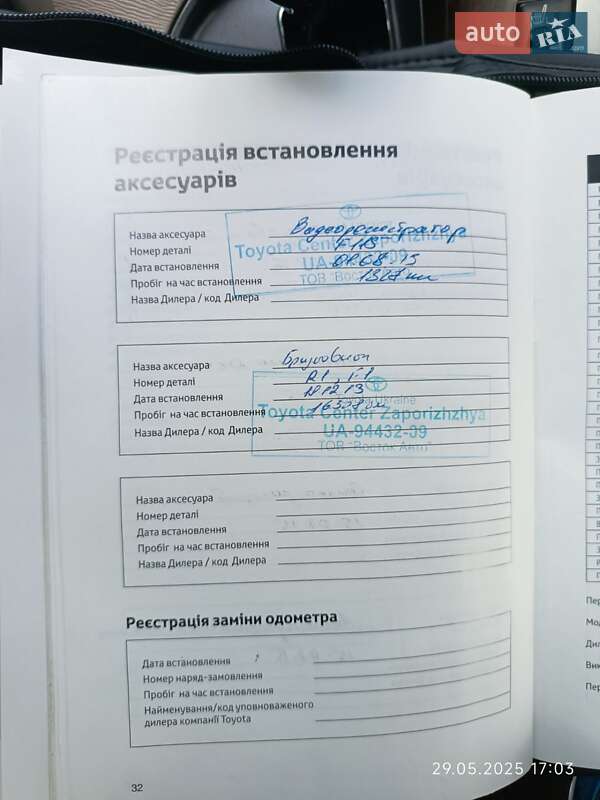 auto RIA.com
Реєстрація встановлення
аксесуарів
Назва аксесуара Видеорегистратор
Номер деталі F118
Toyota Center Zaporizhzhya
Дата встановлення
Пробіг на час встановлення 1327 км
ТОВ "Восток Авто"
Назва Дилера / код Дилера
Назва аксесуара
Номер деталі R1, F1
Дата встановлення
Toyota Ukraine
Пробіг на час встановлення
Toyota Center Zaporizhzhya
Назва Дилера / код Дилера
UA-94432-09
ТОВ "Восток Авто"
Назва аксесуара
Номер деталі
Дата встановлення
Пробіг на час встановлення
Назва Дилера / код Дилера
Реєстрація заміни одометра
Дата встановлення
Номер наряд-замовлення
Пробіг на час встановлення
Найменування/код уповноваженого
дилера компанії Toyota
32
29.05.2025 17:03